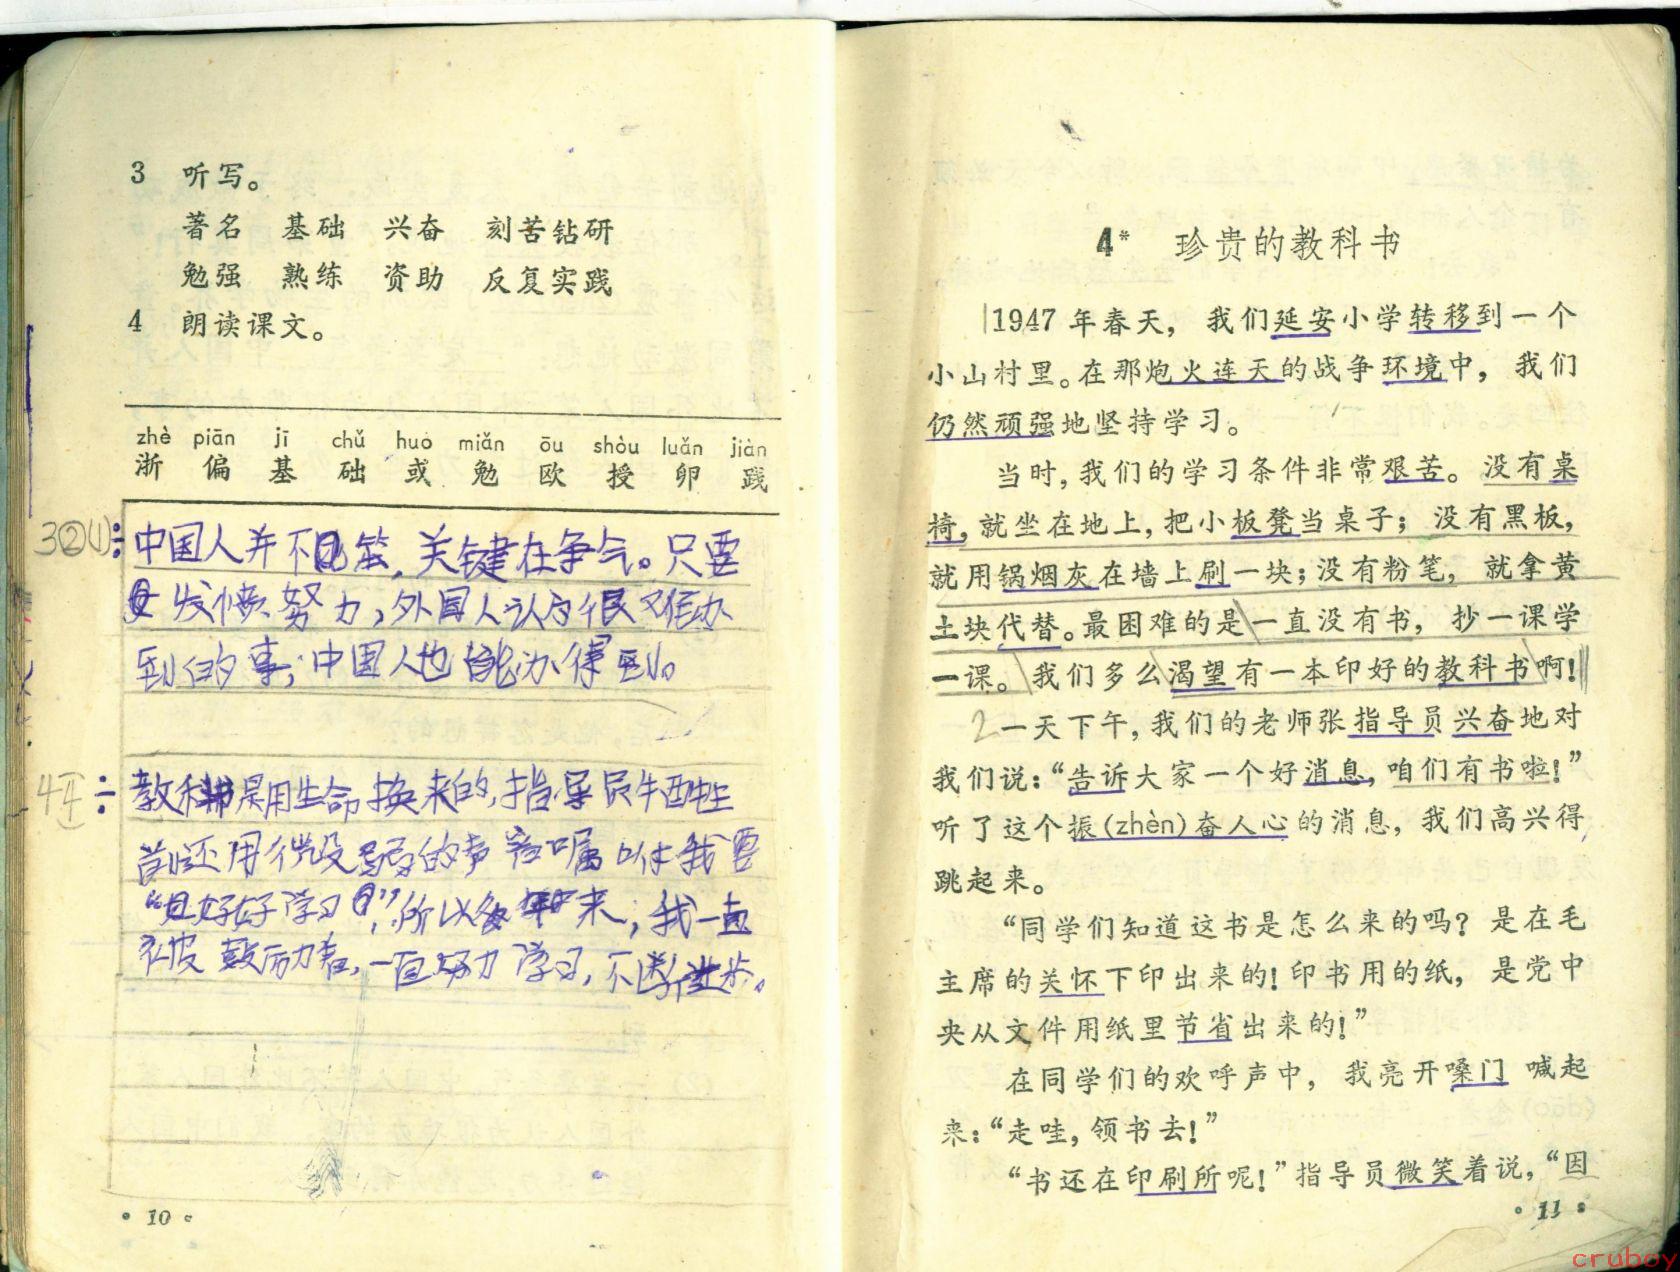 3 听写。
著名 基础 兴奋 刻苦钻研
勉强 熟练 资助 反复实践
4 朗读课文。
zhè piān jī chǔ huò miǎn ōu shòu luǎn jiàn
浙 偏 基 础 或 勉 欧 授 卵 践
3②(1):中国人并不笨,关键在争气。只要
发愤努力,外国人认为很难办
到的事,中国人也能办得到。
教科书是用生命换来的,指导员牺牲
前还用微弱的声音嘱咐我要
“好好学习”,所以多年来,我一直
被鼓励着,一直努力学习,不断进步。
·10·
4* 珍贵的教科书
1947年春天,我们延安小学转移到一个
小山村里。在那炮火连天的战争环境中,我们
仍然顽强地坚持学习。
当时,我们的学习条件非常艰苦。没有桌
椅,就坐在地上,把小板凳当桌子;没有黑板,
就用锅烟灰在墙上刷一块;没有粉笔,就拿黄
土块代替。最困难的是一直没有书,抄一课学
一课。我们多么渴望有一本印好的教科书啊!
2一天下午,我们的老师张指导员兴奋地对
我们说:“告诉大家一个好消息,咱们有书啦!”
听了这个振(zhèn)奋人心的消息,我们高兴得
跳起来。
“同学们知道这书是怎么来的吗?是在毛
主席的关怀下印出来的!印书用的纸,是党中
央从文件用纸里节省出来的!”
在同学们的欢呼声中,我亮开嗓门 喊起
来:“走哇,领书去!”
“书还在印刷所呢!”指导员微笑着说,“因
·11·
cruboy